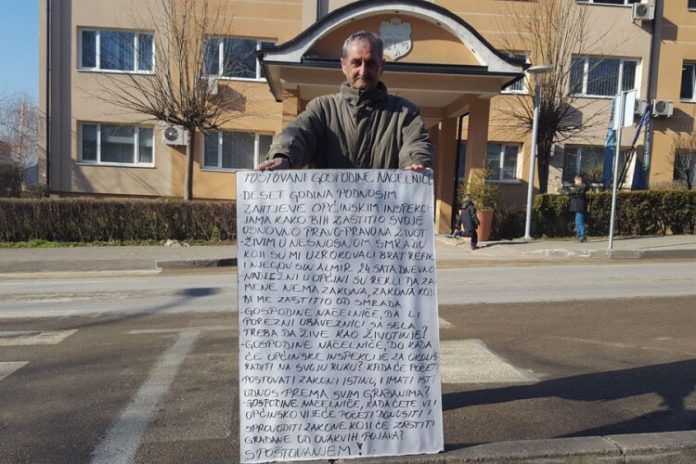 POŠTOVANI GOSPODINE NAČELNIČE
-DESET GODINA PODNOSIM
ZAHTJEVE OPĆINSKIM INSPEKCI-
JAMA KAKO BIH ZAŠTITIO SVOJE
OSNOVNO PRAVO-PRAVO NA ŽIVOT
-ŽIVIM U NESNOSNOM SMRADU
KOJI SU MI UZROKOVALI BRAT REFIK
I NJEGOV SIN ALMIR 24 SATA DNEVNO
-NADLEŽNI U OPĆINI SU REKLI DA ZA
MENE NEMA ZAKONA, ZAKONA KOJI
BI ME ZAŠTITIO OD SMRADA
-GOSPODINE NAČELNIČE, DA LI
POREZNI OBAVEZNICI SA SELA
TREBA DA ŽIVE KAO ŽIVOTINJE?
-GOSPODINE NAČELNIČE, DO KADA
ĆE OPĆINSKE INSPEKCIJE ZA OKOLIŠ
RADITI NA SVOJU RUKU? KADA ĆE POČETI
POŠTOVATI ZAKONI ISTINU, I IMATI ISTI
ODNOS PREMA SVIM GRAĐANIMA?
-GOSPODINE NAČELNIČE, KADA ĆETE VI I
OPĆINSKO VIJEĆE POČETI DONOSITI I
SPROVODITI ZAKONE KOJI ĆE ZAŠTITI
GRAĐANE OD OVAKVIH POJAVA?
S POŠTOVANJEM!